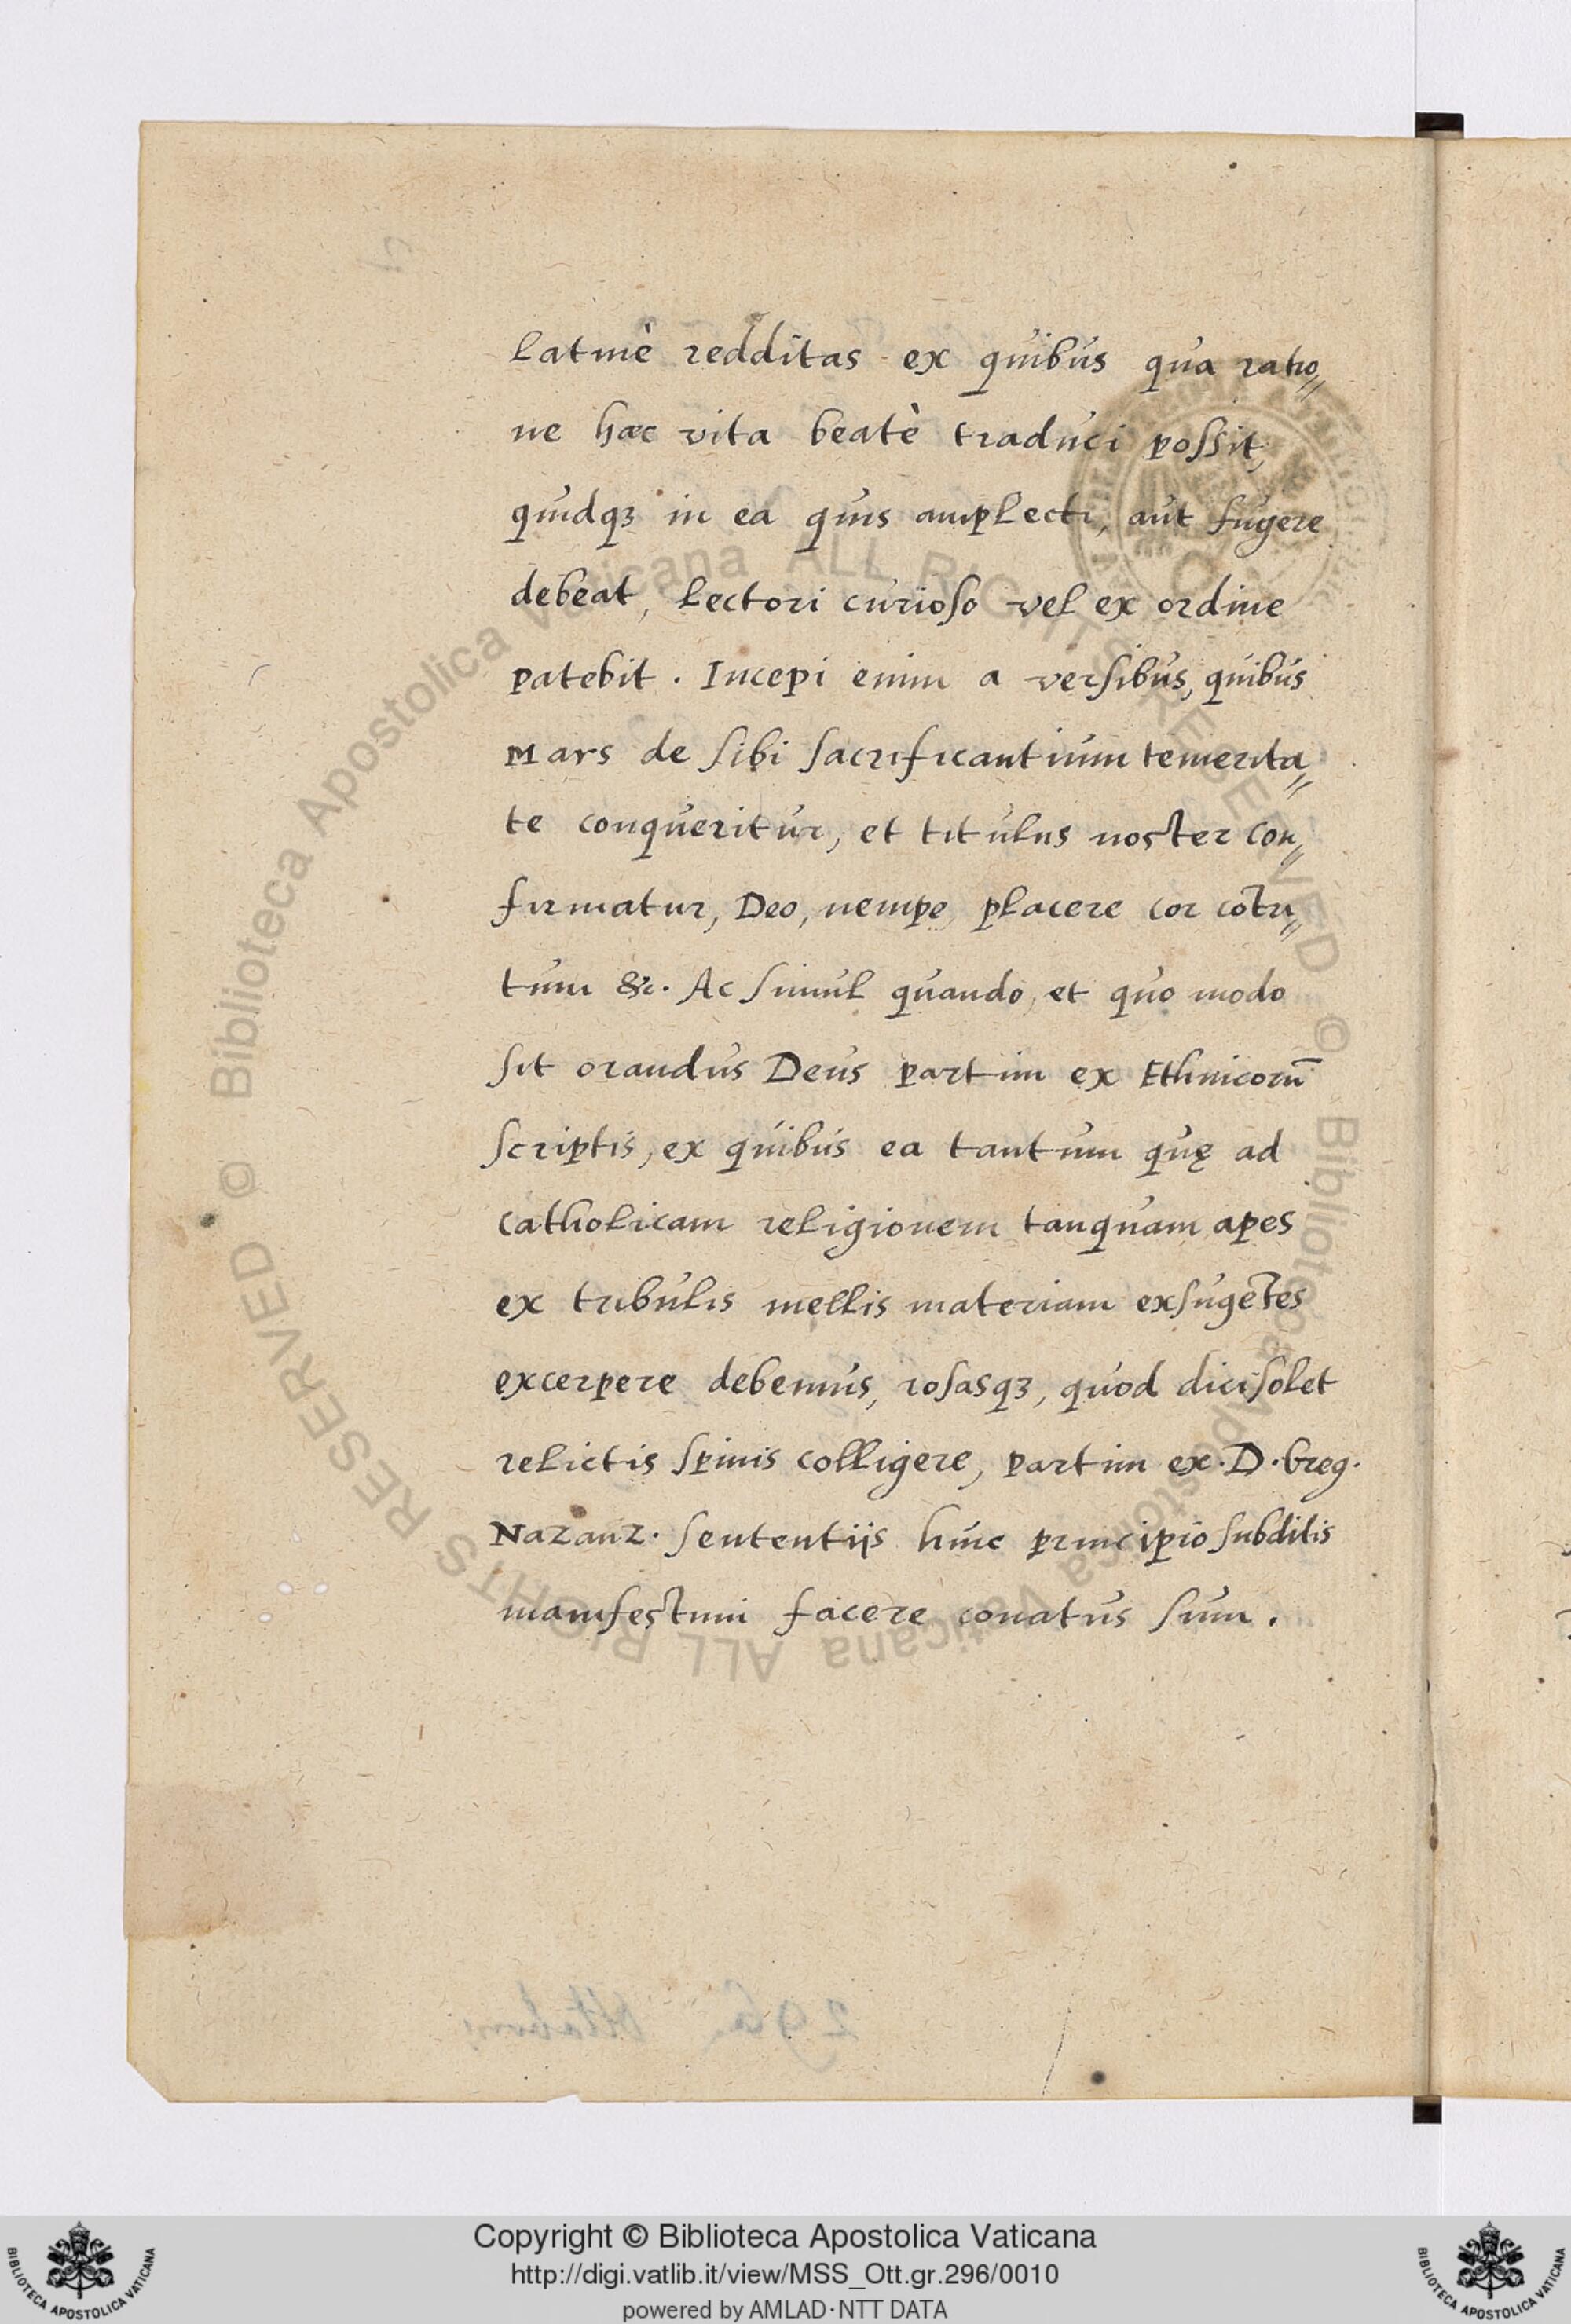 Latinè redditas ex quibus qua ratio⸗
ne haec vita beatè traduci possit,
quidq3 in ea quis amplecti, aut fugere
debeat, Lectori curioso vel ex ordine
patebit. Incepi enim a versibus, quibus
Mars de sibi sacrificantium temerita⸗
te conqueritur, et titulus noster con⸗
firmatur, Deo, nempe, placere cor cōtri⸗
tum &c. Ac simul quando, et quo modo
sit orandus Deus partim ex Ethnicorū
scriptis, ex quibus ea tantum quę ad
catholicam religionem tanquam apes
ex tribulis mellis materiam exsugētes
excerpere debemus, rosasq3, quod dici solet
relictis spinis colligere, partim ex D. Greg.
Nazanz. sententijs huic principio subditis
manifestum facere conatus sum.
Copyright © Biblioteca Apostolica Vaticana
http://digi.vatlib.it/view/MSS_Ott.gr.296/0010
powered by AMLAD·NTT DATA